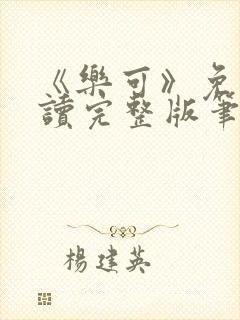 《樂可》免
讀完整版筆
楊建英